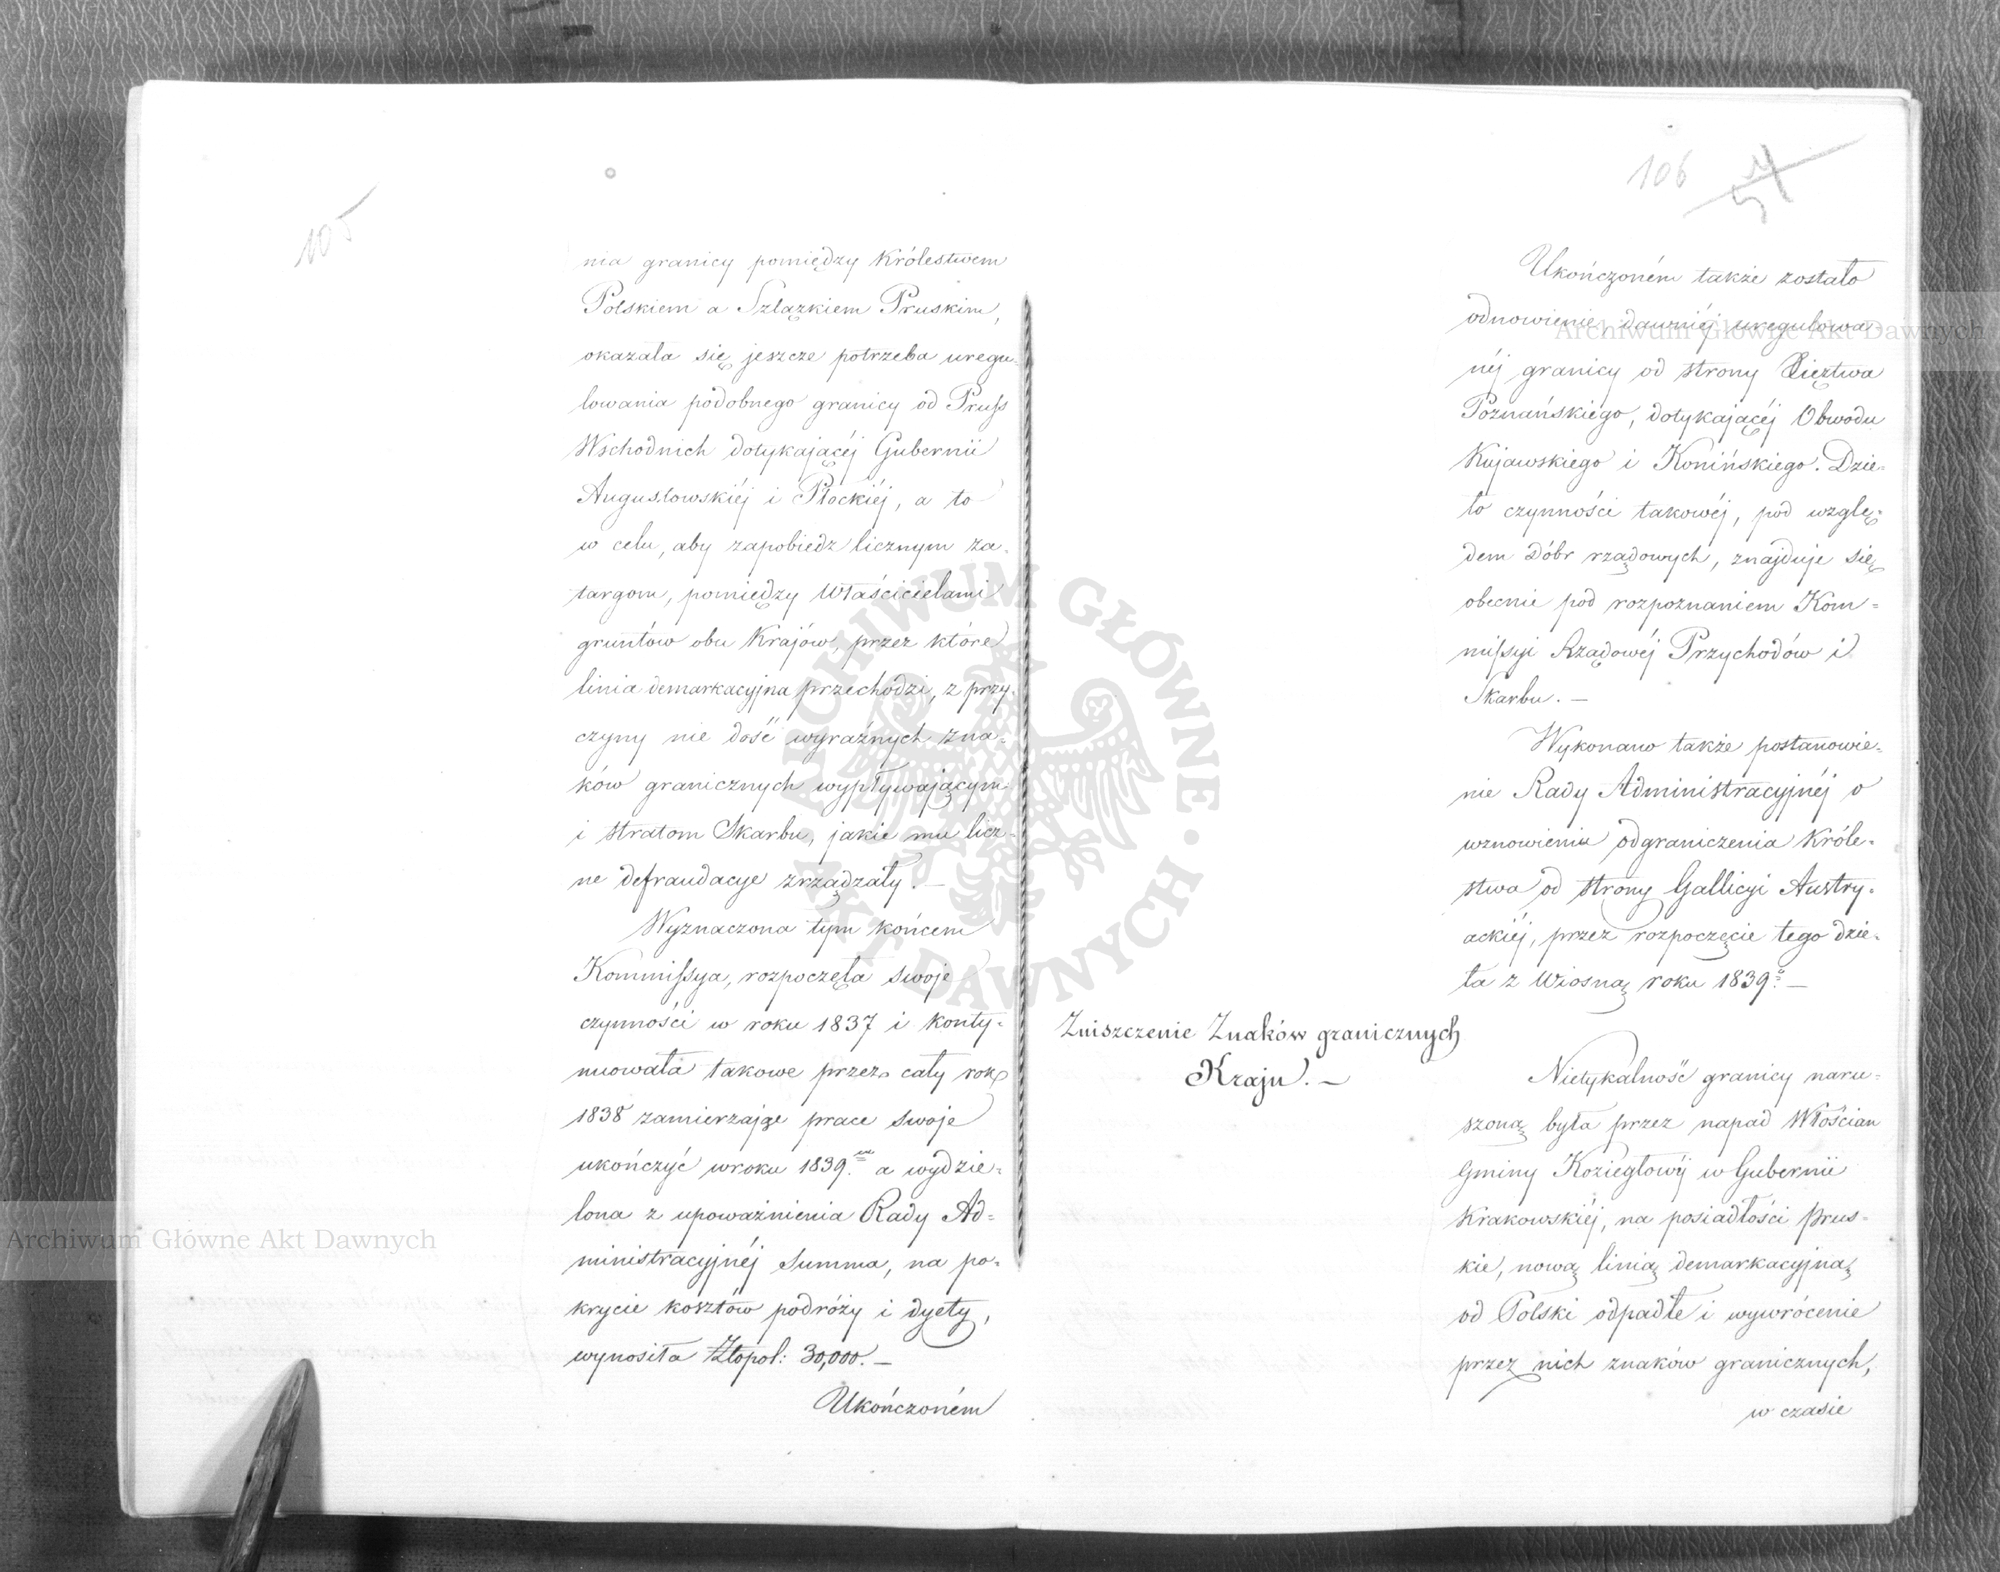 105
nia granicy pomiędzy Królestwem
Polskiem a Szlązkiem Pruskim,
okazała się jeszcze potrzeba uregu-
lowania podobnego granicy od Pruss
Wschodnich dotykającéj Gubernii
Augustowskiéj i Płockiéj, a to
w celu, aby zapobiedz licznym za-
targom, pomiędzy Właścicielami
gruntów obu Krajów, przez które
linia demarkacyjna przechodzi, z przy-
czyny nie dość wyraźnych zna-
ków granicznych wypływającym
i stratom Skarbu, jakie mu licz-
ne defraudacye zrządzały. —
Wyznaczona tym końcem
Kommissya, rozpoczęła swoje
czynności w roku 1837 i konty-
nuowała takowe przez cały rok
1838 zamierzając prace swoje
ukończyć w roku 1839.m a wydzie-
lona z upoważnienia Rady Ad-
ministracyjnéj Summa, na po-
krycie kosztów podróży i dyety,
wynosiła Złopol: 30,000. —
Ukończoném
106
54
Ukończoném także zostało
odnowienie dawniéj uregulowa-
néj granicy od strony Xięztwa
Poznańskiego, dotykającéj Obwodu
Kujawskiego i Konińskiego. Dzie-
ło czynności takowéj, pod wzglę-
dem Dóbr rządowych, znajduje się
obecnie pod rozpoznaniem Kom-
missyi Rządowéj Przychodów i
Skarbu. —
Wykonano także postanowie-
nie Rady Administracyjnéj o
wznowieniu odgraniczenia Króle-
stwa od strony Gallicyi Austry-
ackiéj, przez rozpoczęcie tego dzie-
ła z Wiosną roku 1839.o —
Zniszczenie Znaków granicznych
Kraju. —
Nietykalność granicy naru-
szoną była przez napad Włościan
Gminy Koziegłowy w Gubernii
Krakowskiéj, na posiadłości prus-
kie, nową linią demarkacyjną
od Polski odpadłe i wywrócenie
przez nich znaków granicznych,
w czasie
Archiwum Główne Akt Dawnych
Archiwum Główne Akt Dawnych
ARCHIWUM GŁÓWNE · AKT DAWNYCH ·